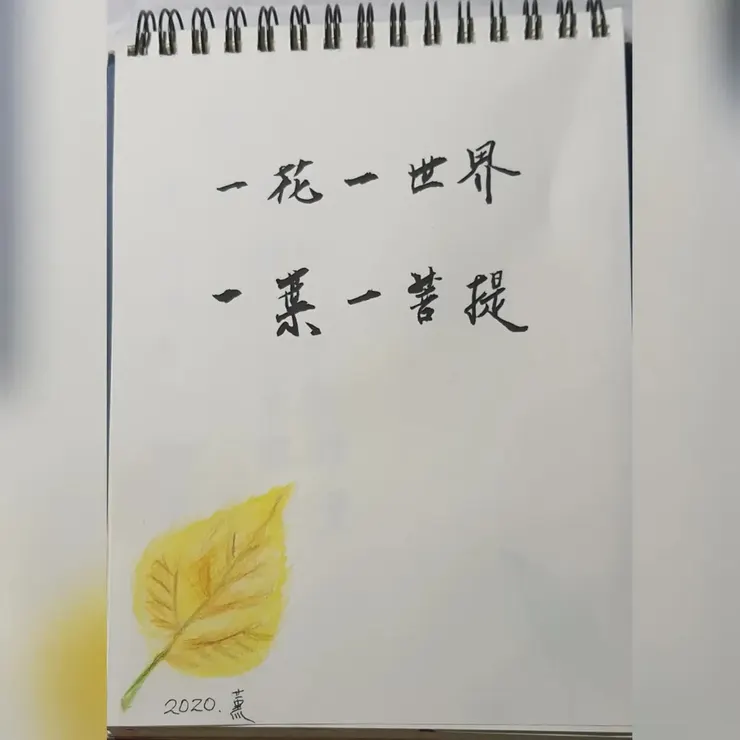 一花一世界
一葉一菩提
2020.薰